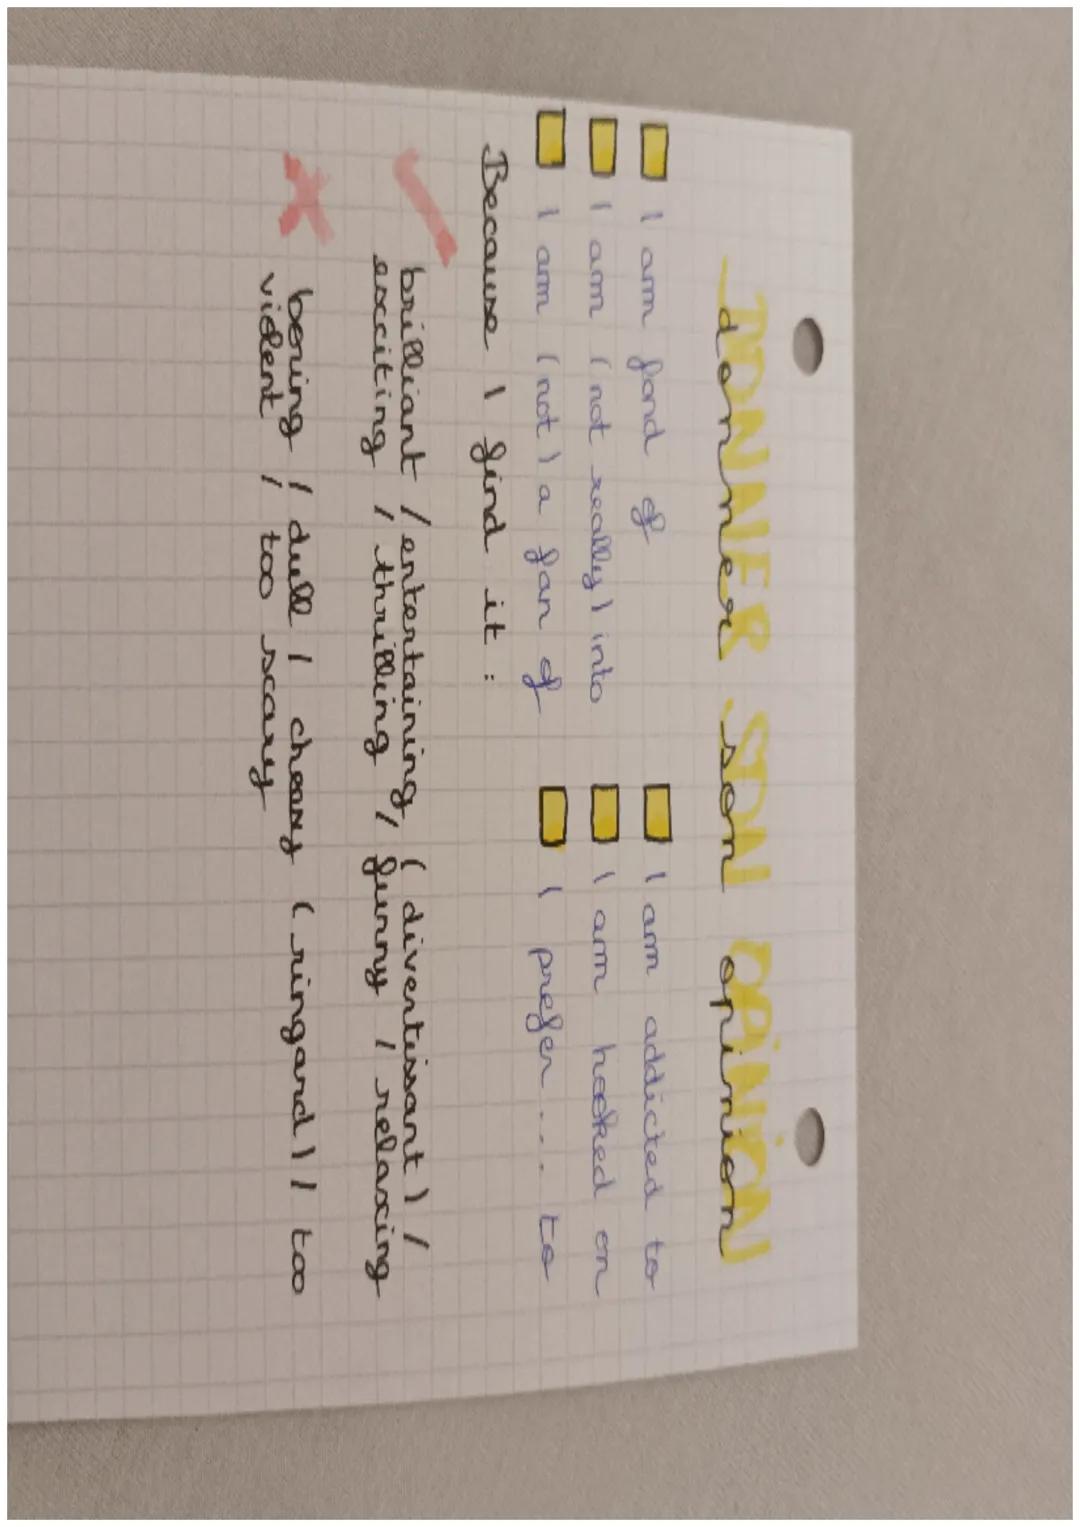 DONNER SON OPINION
donner son opinion
I am fond of
I am (not really) into
I am (not) a fan of
I am addicted to
I am hooked on
I prefer... to
Because I find it :
brilliant / entertaining, (divertissant) /
exciting / thrilling / funny / relaxing
boring / dull / cheasy (ringard) / too
violent / too scary